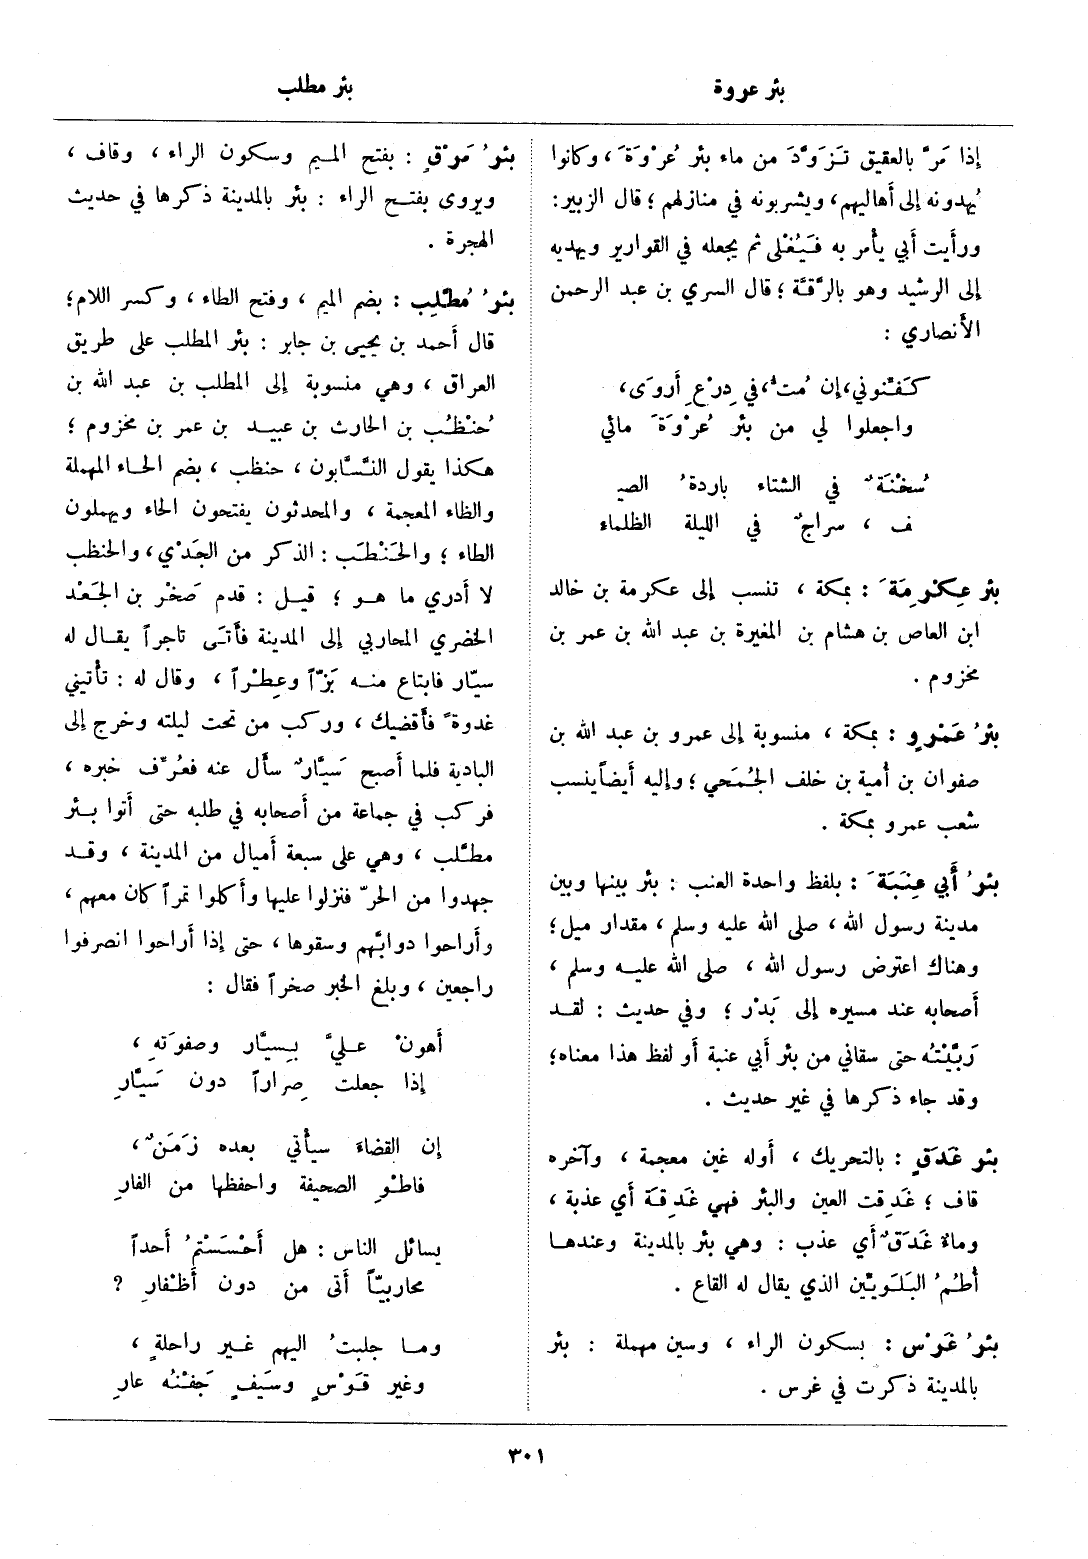 بئر عروة
بئر مطلب
إذا مَرَّ بالعقيق تَزَوَّدَ من ماء بئر عُرْوَةَ، وكانوا
يُهدونه إلى أهاليهم، ويشربونه في منازلهم؛ قال الزبير:
ورأيت أبي يأمر به فَيُغْلى ثم يجعله في القوارير ويهديه
إلى الرشيد وهو بالرَّقَّة؛ قال السري بن عبد الرحمن
الأنصاري:
كَفّنوني، إن مُتُّ، في دِرْعِ أروَى،
واجعلوا لي من بئر عُرْوَةَ مائي
سُخْنَةٌ في الشتاء باردةُ الصيـ
ف، سراجٌ في الليلة الظلماء
بئر عِكْرِمَةَ: بمكة، تنسب إلى عكرمة بن خالد
ابن العاص بن هشام بن المغيرة بن عبد الله بن عمر بن
مخزوم.
بئرُ عَمْرٍو: بمكة، منسوبة إلى عمرو بن عبد الله بن
صفوان بن أمية بن خلف الجُمَحي؛ وإليه أيضاً ينسب
شعب عمرو بمكة.
بئرُ أبي عِنَبَةَ: بلفظ واحدة العنب: بئر بينها وبين
مدينة رسول الله، صلى الله عليه وسلم، مقدار ميل؛
وهناك اعترض رسول الله، صلى الله عليه وسلم،
أصحابه عند مسيره إلى بَدْر؛ وفي حديث: لقد
رَبَّيْتُه حتى سقاني من بئر أبي عنبة أو لفظ هذا معناه؛
وقد جاء ذكرها في غير حديث.
بئر غَدَقٍ: بالتحريك، أوله غين معجمة، وآخره
قاف؛ غَدِقت العين والبئر فهي غَدِقَة أي عذبة،
وماءٌ غَدَقٌ أي عذب: وهي بئر بالمدينة وعندها
أُطُمُ البَلَويّين الذي يقال له القاع.
بئرُ غَرْس: بسكون الراء، وسين مهملة: بئر
بالمدينة ذكرت في غرس.
بئرُ مَرْقٍ: بفتح الميم وسكون الراء، وقاف،
ويروى بفتح الراء: بئر بالمدينة ذكرها في حديث
الهجرة.
بئرُ مُطَّلِب: بضم الميم، وفتح الطاء، وكسر اللام؛
قال أحمد بن يحيى بن جابر: بئر المطلب على طريق
العراق، وهي منسوبة إلى المطلب بن عبد الله بن
حُنْظُب بن الحارث بن عبيد بن عمر بن مخزوم؛
هكذا يقول النَّسَّابون، حنظب، بضم الحاء المهملة
والظاء المعجمة، والمحدثون يفتحون الحاء ويهملون
الطاء؛ والحَنْطَب: الذكر من الجَدْي، والحنظب
لا أدري ما هو؛ قيل: قدم صَخْر بن الجَعْد
الخضري المحاربي إلى المدينة فأَتَى تاجراً يقال له
سيّار فابتاع منه بَزّاً وعِطْراً، وقال له: تأتيني
غدوةً فأقضيك، وركب من تحت ليلته وخرج إلى
البادية فلما أصبح سَيَّارٌ سأل عنه فعُرِّف خبره،
فركب في جماعة من أصحابه في طلبه حتى أتوا بئر
مطَّلب، وهي على سبعة أميال من المدينة، وقد
جهدوا من الحرّ فنزلوا عليها وأكلوا تمراً كان معهم،
وأراحوا دوابَّهم وسقوها، حتى إذا أراحوا انصرفوا
راجعين، وبلغ الخبر صخراً فقال:
أهونْ عليَّ بسيَّار وصفوَتِه،
إذا جعلت صِراراً دون سَيَّارِ
إن القضاءَ سيأتي بعده زَمَنٌ،
فاطْوِ الصحيفة واحفظها من الفارِ
يسائل الناس: هل أَحْسَسْتمُ أحداً
محاربيّاً أتى من دون أَظْفارِ؟
وما جلبتُ اليهم غير راحلةٍ،
وغير قَوْسٍ وسَيفٍ جَفْنُه عارِ
٣٠١